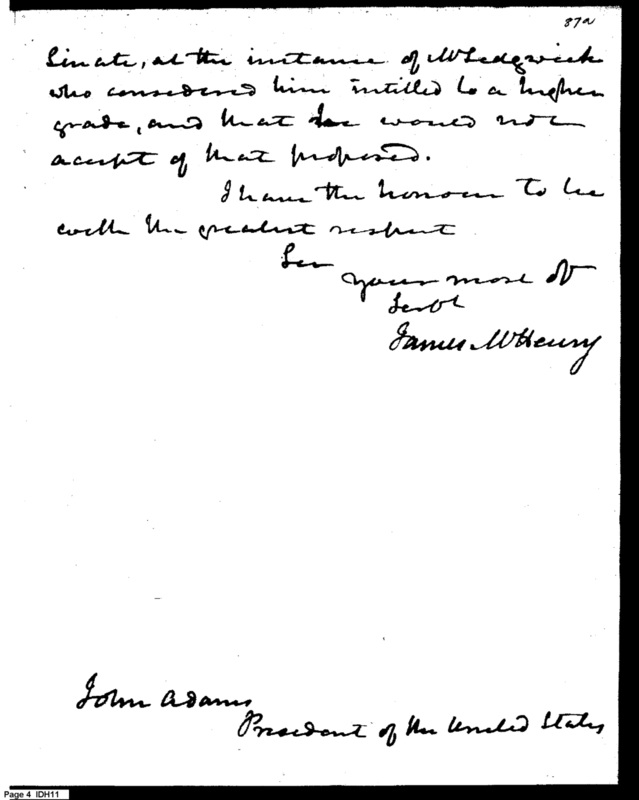 87a
Senate, at the instance of Mr Sedgwick
who considered him intitled to a higher
grade, and that he would not
accept of that proposed.
I have the honour to be
with the greatest respect
Sir
your most ob
Servt
James McHenry
John Adams
President of the United States
Page 4 IDH11